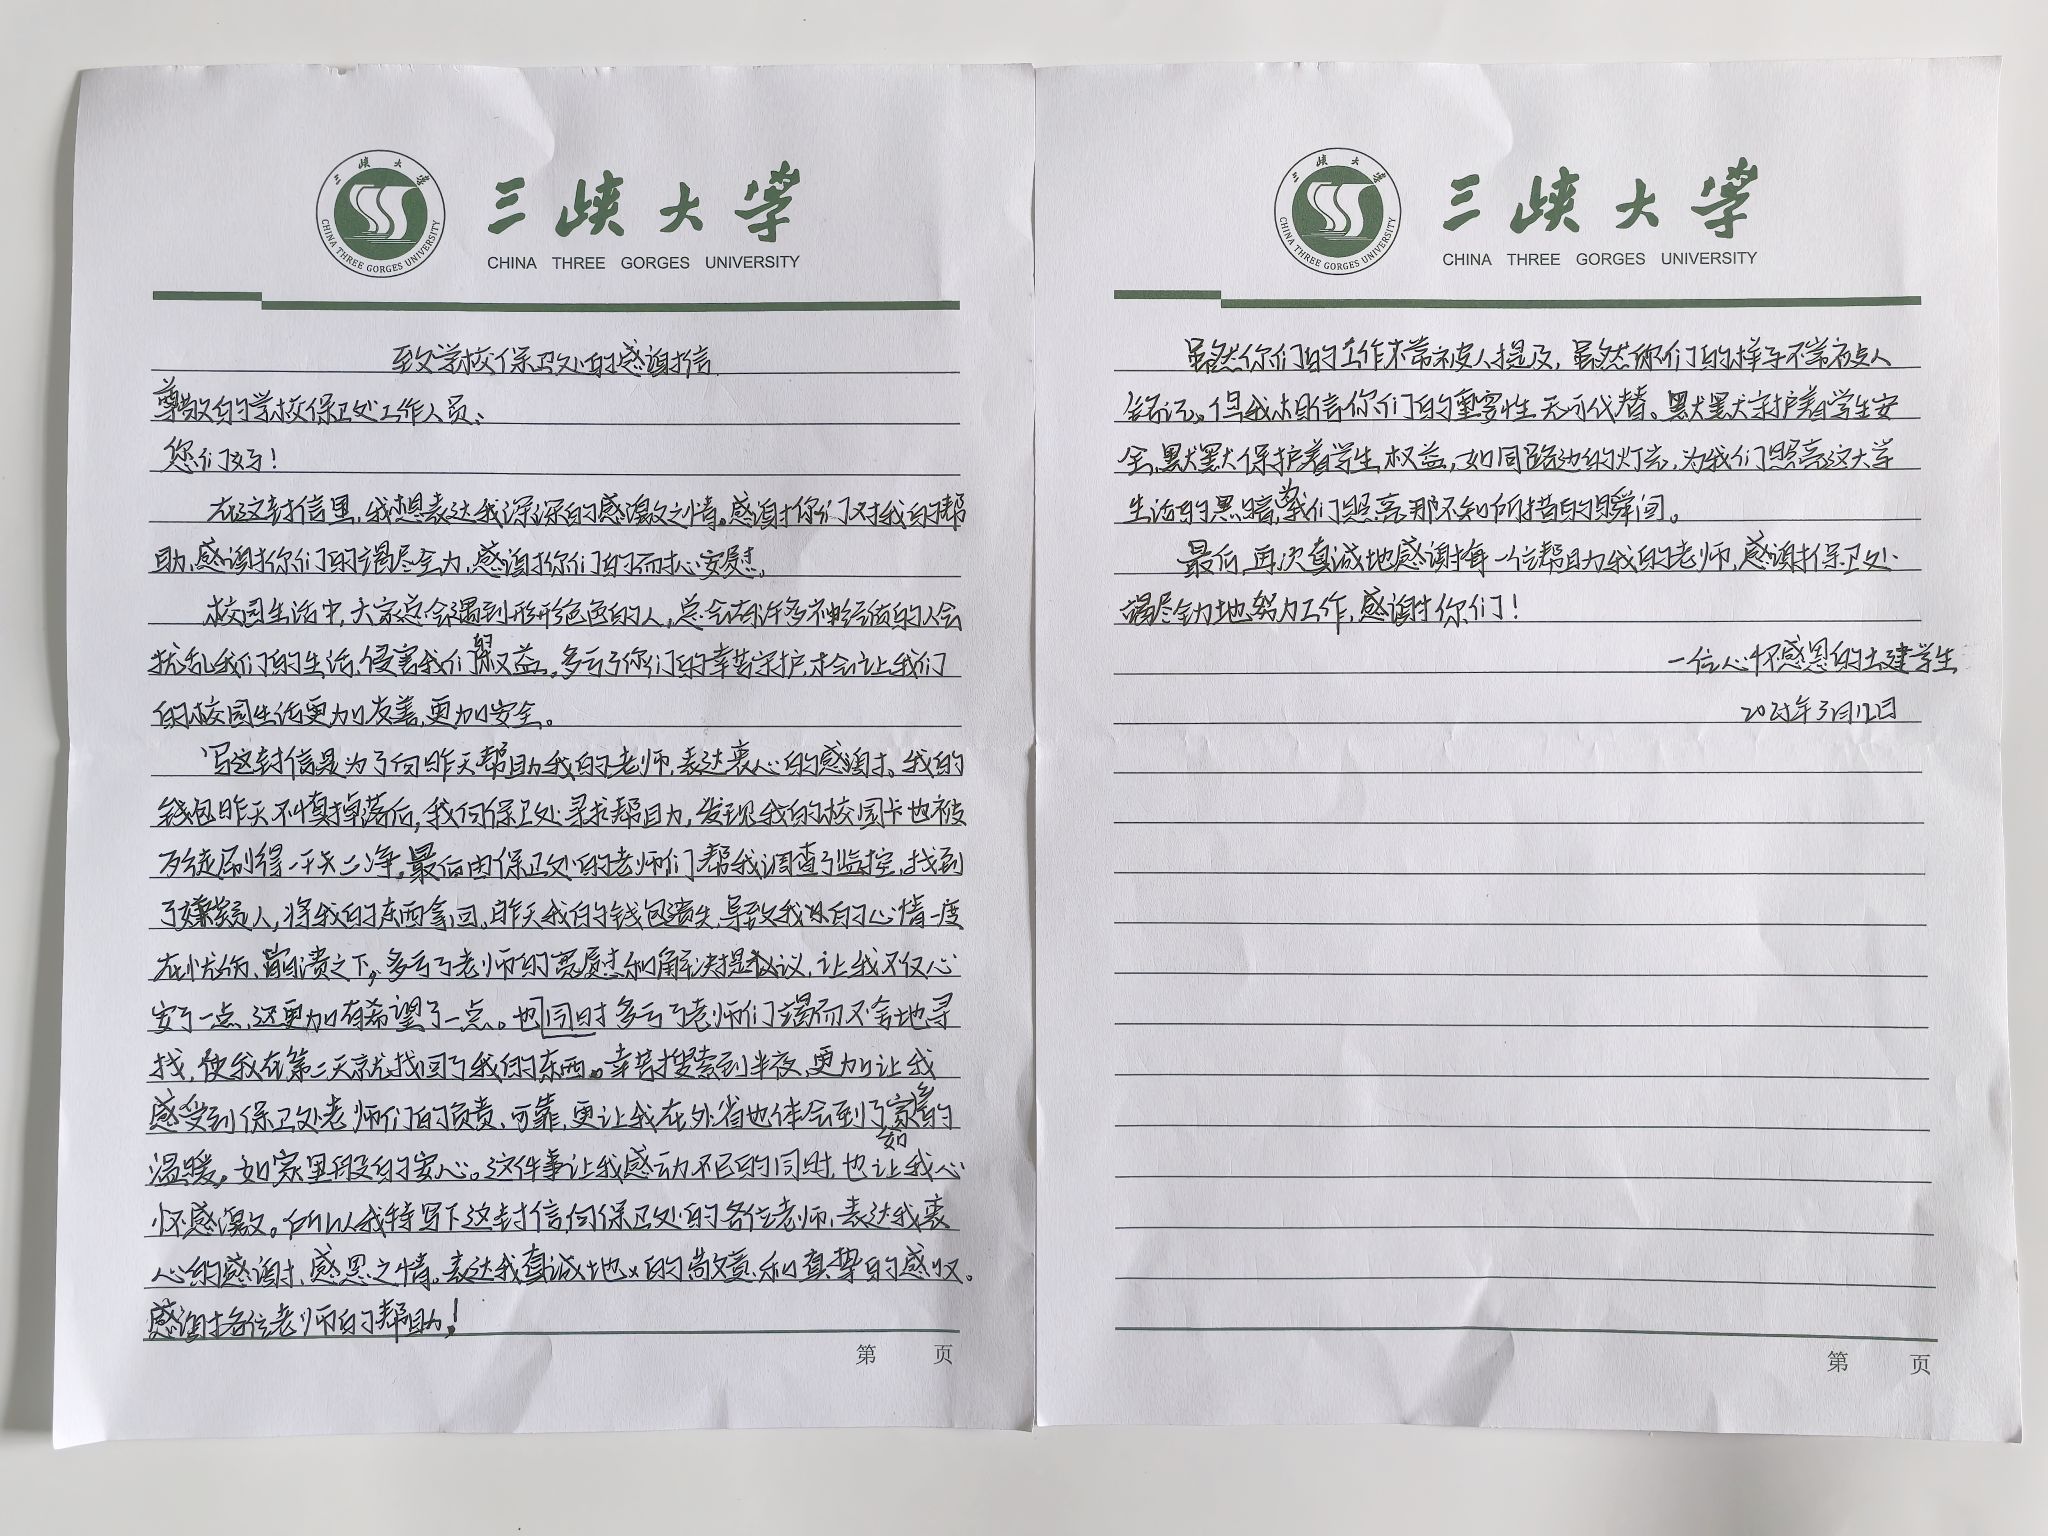 三峡大学
CHINA THREE GORGES UNIVERSITY
三峡大学
CHINA THREE GORGES UNIVERSITY
致学校保卫处的感谢信
尊敬的学校保卫处工作人员：
您们好！
在这封信里，我想表达我深深的感激之情。感谢你们对我的帮
助，感谢你们的竭尽全力，感谢你们的耐心安慰。
校园生活中，大家总会遇到形形色色的人，总会有许多神经质的人会
扰乱我们的生活，侵害我们的权益。多亏了你们的辛苦守护，才会让我们
的校园生活更加友善，更加安全。
写这封信是为了向昨天帮助我的老师，表达衷心的感谢。我的
钱包昨天不慎掉落后，我向保卫处寻求帮助，发现我的校园卡也被
歹徒刷得一干二净。最后由保卫处的老师们帮我调查了监控，找到
了嫌疑人，将我的东西拿回。昨天我的钱包遗失，导致我的心情一度
在忧伤、崩溃之下，多亏了老师的宽慰和解决提议，让我不仅心
安了一点，还更加有希望了一点。也同时多亏了老师们竭而不舍地寻
找，使我在第二天就找回了我的东西。辛苦搜索到半夜，更加让我
感受到保卫处老师们的负责、可靠，更让我在外省也体会到了如家乡的
温暖，如家里般的安心。这件事让我感动不已的同时，也让我心
怀感激。所以我特写下这封信，向保卫处的各位老师，表达我衷
心的感谢、感恩之情。表达我真诚地的敬意和真挚的感叹。
感谢各位老师的帮助！
第 页
三峡大学
CHINA THREE GORGES UNIVERSITY
三峡大学
CHINA THREE GORGES UNIVERSITY
虽然你们的工作不常被人提及，虽然你们的样子不常被人
铭记。但我相信你们的重要性无可代替。默默守护着学生安
全，默默保护着学生权益，如同路边的灯光，为我们照亮这大学
生活的黑暗，为我们照亮那不知所措的瞬间。
最后，再次真诚地感谢每一位帮助我的老师，感谢保卫处
竭尽全力地努力工作，感谢你们！
一位心怀感恩的土建学生
3月12日
第 页